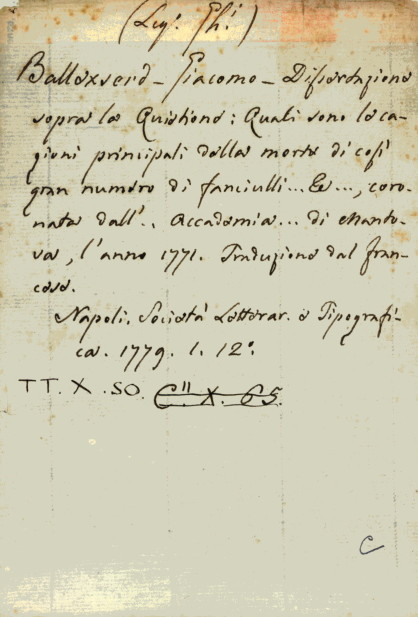 (Lug. Gh.)
Ballexserd - Giacomo - Dissertazione
sopra la Quistione: Quali sono le ca-
gioni principali della morte di così
gran numero di fanciulli... &..., coro-
nata dall'.. Accademia... di Manto-
va, l'anno 1771. Traduzione dal fran-
cese.
Napoli. Società Letterar. e Tipografi-
ca. 1779. 1. 12°.
TT. X. SO. C" X. 65.
C